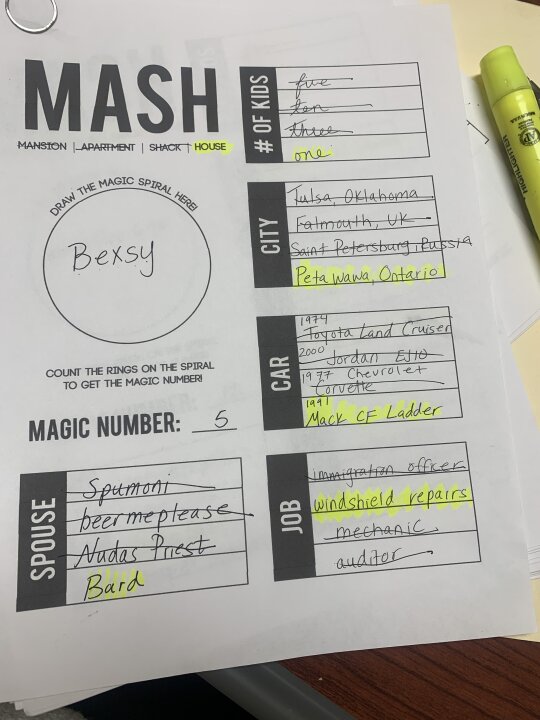 MASH
MANSION | APARTMENT | SHACK | HOUSE
DRAW THE MAGIC SPIRAL HERE!
Bexsy
COUNT THE RINGS ON THE SPIRAL
TO GET THE MAGIC NUMBER!
MAGIC NUMBER: 5
SPOUSE
Spumoni
beermeplease
Nudas Priest
Bard
# OF KIDS
five
ten
three
one
CITY
Tulsa, Oklahoma
Falmouth, UK
Saint Petersburg, Russia
Petawawa, Ontario
CAR
1974
Toyota Land Cruiser
2000
Jordan EJ10
1977 Chevrolet
Corvette
1991
Mack CF Ladder
JOB
immigration officer
windshield repairs
mechanic
auditor
HIGHLIGHTER